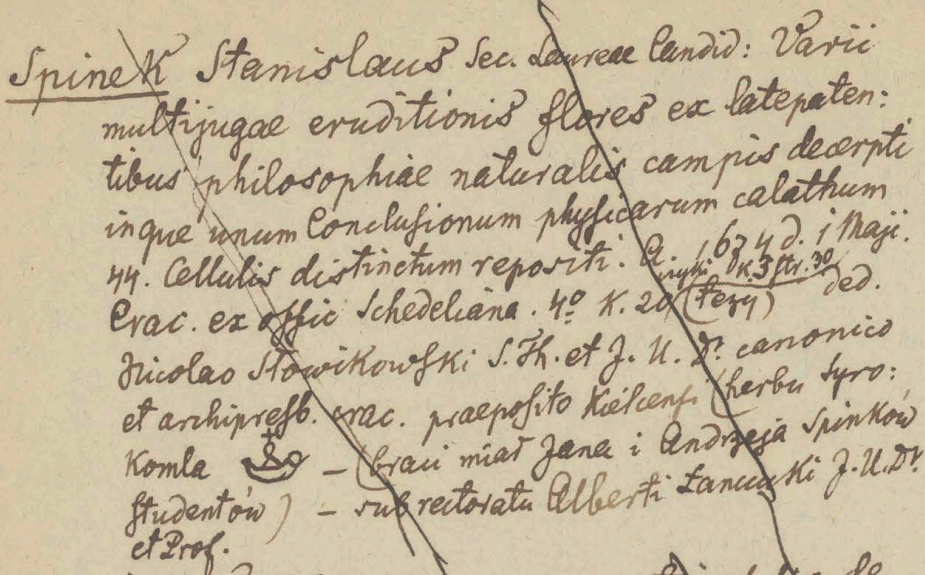 Spinek Stanislaus Sec. Laureae Candid: Varii
multijugae eruditionis flores ex latepaten:
tibus philosophiae naturalis campis decerpti
inque unum Conclusionum physicarum calathum
44. Cellulis distinctum repositi. A 1674 d. 1 Maji.
k. 3 str. 30
Crac. ex offic Schedeliana. 4º K. 20 (tezy) ded.
Nicolao Słowikowski S. Th. et J. U. Dr. canonico
et archipresb. Crac. praeposito Kielcensi (herbu Syro:
Komla – (braci miał Jana i Andrzeja Spinków
studentów) – sub rectoratu Alberti Łancucki J. U. Dr
et Prof.